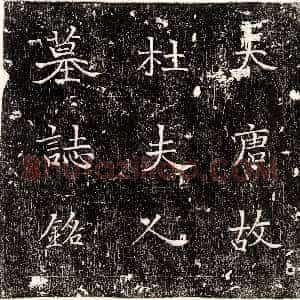 大唐故
杜夫人
墓誌銘